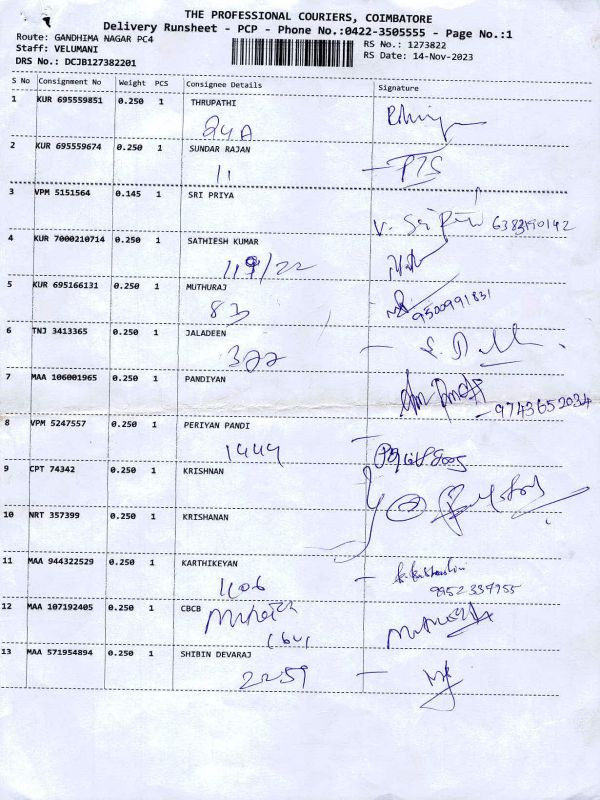 THE PROFESSIONAL COURIERS, COIMBATORE
Delivery Runsheet - PCP - Phone No.:0422-3505555 - Page No.:1
Route: GANDHIMA NAGAR PC4 RS No.: 1273822
Staff: VELUMANI RS Date: 14-Nov-2023
DRS No.: DCJB127382201
S No Consignment No Weight PCS Consignee Details Signature
1 KUR 695559851 0.250 1 THRUPATHI
24A
2 KUR 695559674 0.250 1 SUNDAR RAJAN
11
3 VPM 5151564 0.145 1 SRI PRIYA
V. Sri Priya
4 KUR 7000210714 0.250 1 SATHIESH KUMAR
5 KUR 695166131 0.250 1 MUTHURAJ
83 9500991831
6 TNJ 3413365 0.250 1 JALADEEN
322
7 MAA 106001965 0.250 1 PANDIYAN
9743652034
8 VPM 5247557 0.250 1 PERIYAN PANDI
1444
9 CPT 74342 0.250 1 KRISHNAN
10 NRT 357399 0.250 1 KRISHANAN
11 MAA 944322529 0.250 1 KARTHIKEYAN
1106
12 MAA 107192405 0.250 1 CBCB
1641
13 MAA 571954894 0.250 1 SHIBIN DEVARAJ
2259